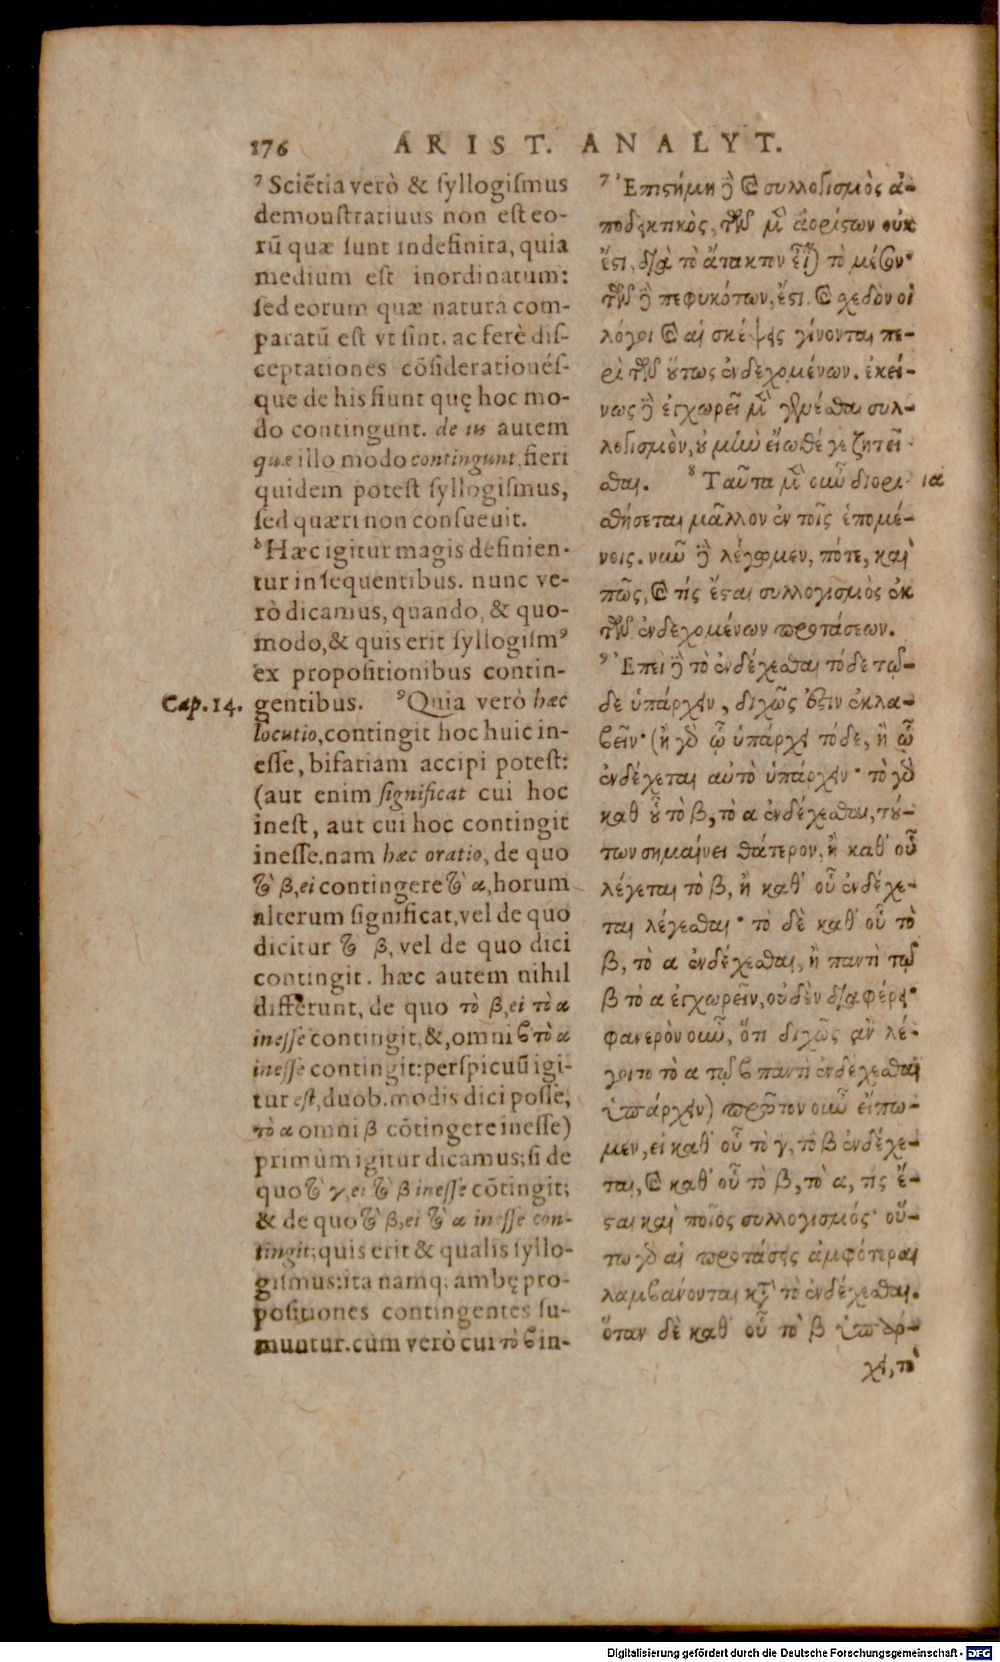 176 ARIST. ANALYT.
⁷ Sciẽtia verò & ſyllogiſmus
demonſtratiuus non eſt eo-
rũ quæ ſunt indefinita, quia
medium eſt inordinatum:
ſed eorum quæ natura com-
paratũ eſt vt ſint. ac ferè diſ-
ceptationes cõſiderationéſ-
que de his fiunt quę hoc mo-
do contingunt. de iis autem
quæ illo modo contingunt, fieri
quidem poteſt ſyllogiſmus,
ſed quæri non conſueuit.
⁸ Hæc igitur magis definien-
tur in ſequentibus. nunc ve-
rò dicamus, quando, & quo-
modo, & quis erit ſyllogiſmꝰ
ex propoſitionibus contin-
Cap. 14. gentibus. ⁹ Quia verò hæc
locutio, contingit hoc huic in-
eſſe, bifariam accipi poteſt:
(aut enim ſignificat cui hoc
ineſt, aut cui hoc contingit
ineſſe. nam hæc oratio, de quo
τὸ β, ei contingere τὸ α, horum
alterum ſignificat, vel de quo
dicitur τὸ β, vel de quo dici
contingit. hæc autem nihil
differunt, de quo τὸ β, ei τὸ α
ineſſe contingit, &, omni β τὸ α
ineſſe contingit: perſpicuũ igi-
tur eſt, duob. modis dici poſſe,
τὸ α omni β cõtingere ineſſe)
primùm igitur dicamus; ſi de
quo τὸ γ, ei τὸ β ineſſe cõtingit;
& de quo τὸ β, ei τὸ α ineſſe con-
tingit; quis erit & qualis ſyllo-
giſmus: ita namq; ambę pro-
poſitiones contingentes ſu-
muntur. cùm verò cui τὸ β in-
⁷ Ἐπιστήμη δὲ καὶ συλλογισμὸς ἀ-
ποδεικτικὸς, τῶν μὲν ἀορίστων οὐκ
ἔστι, διὰ τὸ ἄτακτον εἶναι τὸ μέσον·
τῶν δὲ πεφυκότων, ἔστι. καὶ σχεδὸν οἱ
λόγοι καὶ αἱ σκέψεις γίνονται πε-
ρὶ τῶν οὕτως ἐνδεχομένων. ἐκεί-
νως δὲ ἐγχωρεῖ μὲν γενέσθαι συλ-
λογισμὸν, οὐ μὴν εἴωθέ γε ζητεῖ-
σθαι. ⁸ Ταῦτα μὲν οὖν διορι- ιδ
σθήσεται μᾶλλον ἐν τοῖς ἑπομέ-
νοις. νῦν δὲ λέγωμεν, πότε, καὶ
πῶς, καὶ τίς ἔσται συλλογισμὸς ἐκ
τῶν ἐνδεχομένων προτάσεων.
⁹ Ἐπεὶ δὲ τὸ ἐνδέχεσθαι τόδε τῷ-
δε ὑπάρχειν, διχῶς ἔστιν ἐκλα-
βεῖν· (ἢ γὰρ ᾧ ὑπάρχει τόδε, ἢ ᾧ
ἐνδέχεται αὐτὸ ὑπάρχειν· τὸ γὰρ
καθ' οὗ τὸ β, τὸ α ἐνδέχεσθαι, τού-
των σημαίνει θάτερον, ἢ καθ' οὗ
λέγεται τὸ β, ἢ καθ' οὗ ἐνδέχε-
ται λέγεσθαι· τὸ δὲ καθ' οὗ τὸ
β, τὸ α ἐνδέχεσθαι, ἢ παντὶ τῷ
β τὸ α ἐγχωρεῖν, οὐδὲν διαφέρει·
φανερὸν οὖν, ὅτι διχῶς ἂν λέ-
γοιτο τὸ α τῷ β παντὶ ἐνδέχεσθαι
ὑπάρχειν) πρῶτον οὖν εἴπω-
μεν, εἰ καθ' οὗ τὸ γ, τὸ β ἐνδέχε-
ται, καὶ καθ' οὗ τὸ β, τὸ α, τίς ἔ-
σται καὶ ποῖος συλλογισμός· οὕ-
τω γὰρ αἱ προτάσεις ἀμφότεραι
λαμβάνονται κατὰ τὸ ἐνδέχεσθαι.
ὅταν δὲ καθ' οὗ τὸ β ὑπάρ-
χει, τὸ
Digitalisierung gefördert durch die Deutsche Forschungsgemeinschaft - DFG